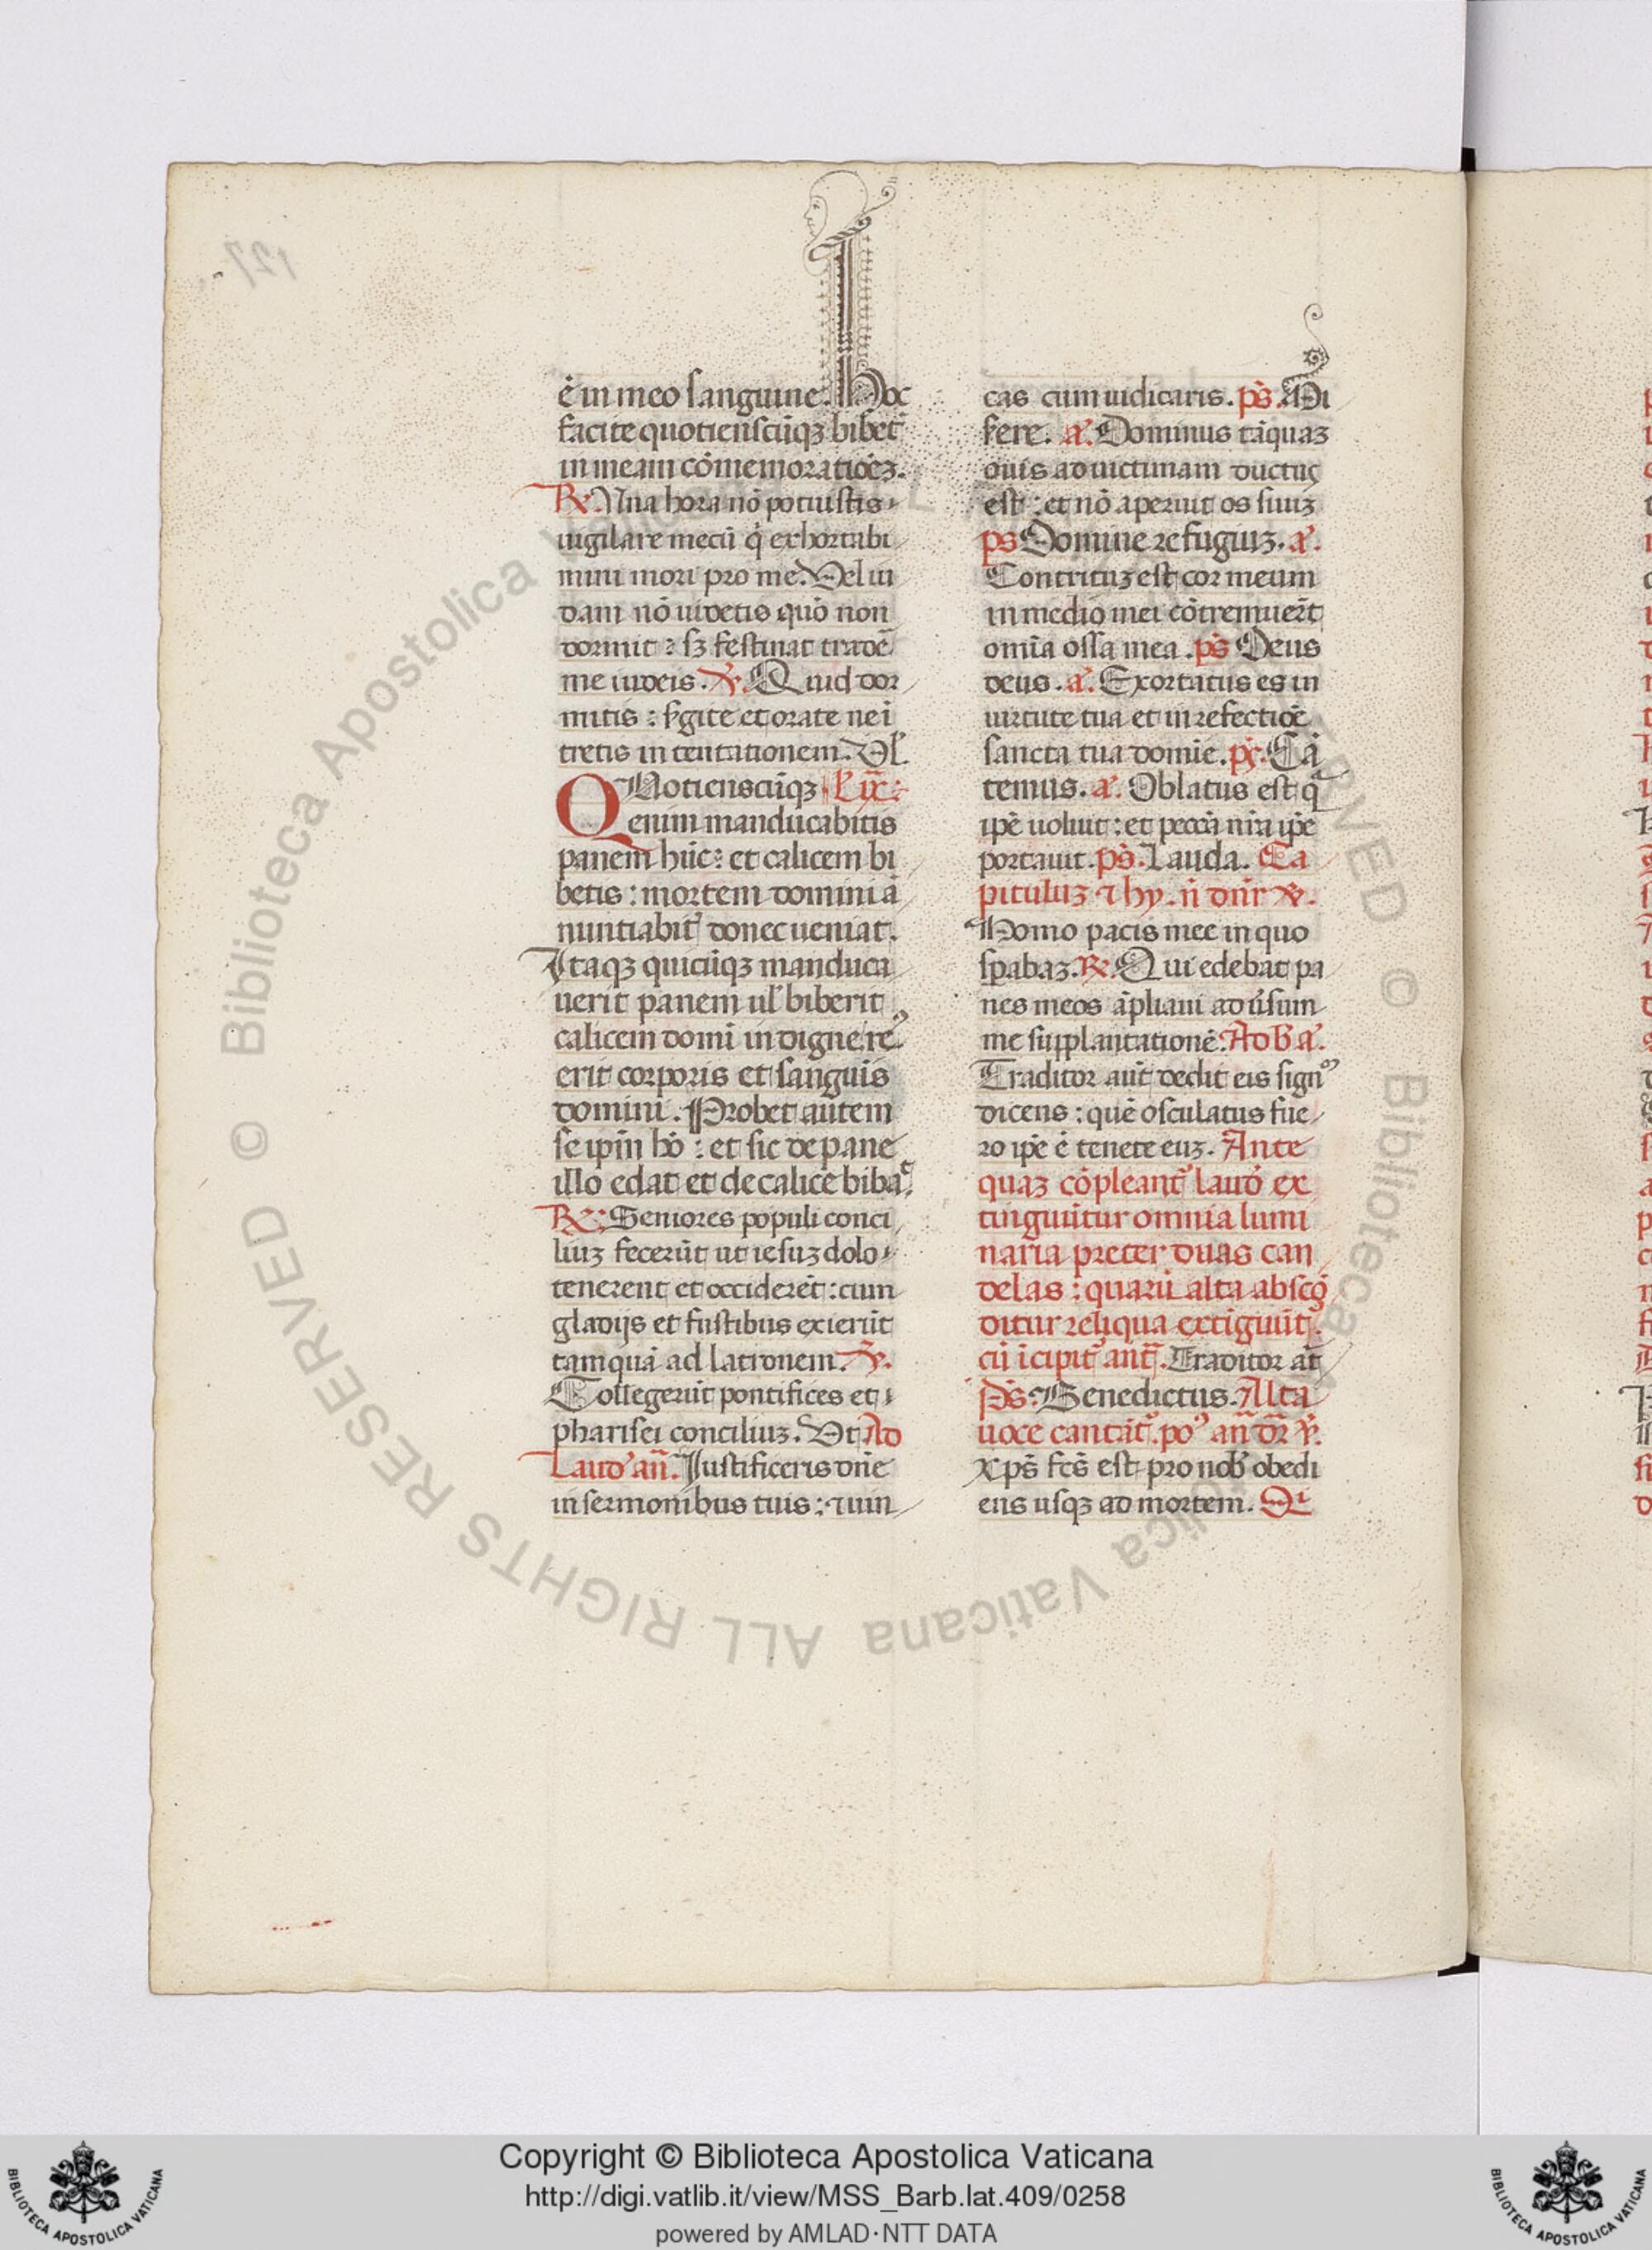 ē in meo sanguine. Hoc
facite quotienscūqꝫ bibet᷒
in meam cōmemoratiōeꝫ.
℟. Una hora nō potuistis
uigilare mecū q̇ exhortabi
mini mori pro me. Vel iu
dam nō uidetis quō non
dormit: sꝫ festinat tradē
me iudeis. ℣. Quid dor
mitis: sgite et orate ne ī
tretis in tentationem. Vl̓.
Quotienscūqꝫ
enim manducabitis
panem hūc: et calicem bi
betis: mortem domini ā
nuntiabit᷒ donec ueniat.
Itaqꝫ quicūqꝫ manduca
uerit panem ul̓ biberit
calicem domī indigne: re᷒
erit corporis et sanguīs
domini. Probet autem
se ipm̄ hō: et sic de pane
illo edat et de calice bibat.
℟. Seniores populi conci
liuꝫ fecerūt ut iesuꝫ dolo
tenerent et occiderēt: cum
gladijs et fustibus exierūt
tamquā ad latronem. ℣.
Collegerūt pontifices et
pharisei conciliuꝫ. Vt Ad
Laud᷒ an̄. Iustificeris dn̄e
in sermonibus tuis: ⁊ uin
cas cum iudicaris. ps̄. Mi
sere. a᷒. Dominus tāquaꝫ
ouis ad uictimam ductus
est: et nō aperuit os suuꝫ
ps Domine refugiuꝫ. a᷒.
Contrituꝫ est cor meum
in medio mei cōtremuer̄t
omīa ossa mea. ps̄ Deus
deus. a᷒. Exortatus es in
uirtute tua et in refectiōe
sancta tua domīe. ps̄. Cā
temus. a᷒. Oblatus est q̄
ipē uoluit: et peccā nr̄a ipē
portauit. ps̄. Lauda. Ca
pituluꝫ ⁊ hy. n̄ dn̄r ℣.
Homo pacis mee in quo
sp̄abaꝫ. ℟. Qui edebat pa
nes meos āpliauit ad ūsum
me supplantationē. Ad b̄ a᷒.
Traditor aūt dedit eis signū
dicens: quē osculatus fue
ro ipē ē tenete euꝫ. Ante
quaꝫ cōpleant᷒ laud᷒ ex
tinguūtur omnia lumi
naria preter duas can
delas: quarū alta abscō
ditur reliqua extiguit᷒.
cū īcipit᷒ ant̄. Traditor āt
Ps̄. Benedictus. Alta
uoce cantāt᷒. po᷒ an̄ dr̄ ℣.
Xps̄ fcs̄ est pro nob᷒ obedi
ens usqꝫ ad mortem. Qi
Copyright © Biblioteca Apostolica Vaticana
http://digi.vatlib.it/view/MSS_Barb.lat.409/0258
powered by AMLAD·NTT DATA